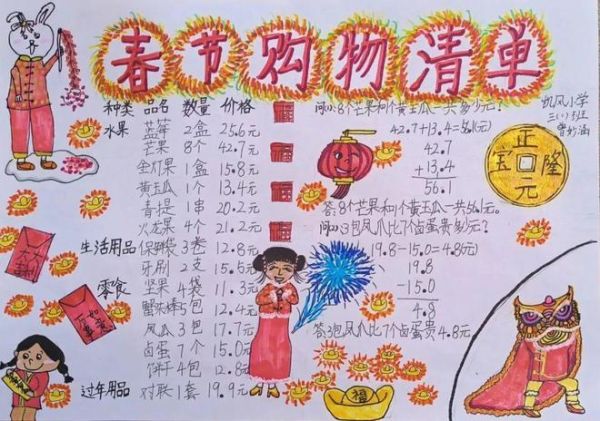 春节购物清单
种类 品名 数量 价格
水果 蓝莓 2盒 25.6元
芒果 8个 42.7元
金灯果 1盒 15.8元
黄玉瓜 1个 13.4元
青提 1串 20.2元
火龙果 4个 21.2元
生活用品 保鲜袋 3卷 12.8元
牙刷 2支 15.6元
零食 坚果 4袋 11.3元
蟹味棒 5包 12.4元
凤爪 3包 17.7元
卤蛋 7个 15.0元
饼干 4包 12.8元
过年用品 对联 1套 19.9元
福
福
福
问(1):8个芒果和1个黄玉瓜一共多少元?
42.7+13.4=56.1(元)
42.7
+13.4
56.1
答:8个芒果和1个黄玉瓜一共56.1元。
问(2):3包凤爪比7个卤蛋贵多少元?
19.8-15.0=4.8(元)
19.8
-15.0
4.8
答:3包凤爪比7个卤蛋贵4.8元
凯风小学
三(1)班
正隆元
万事如意
福